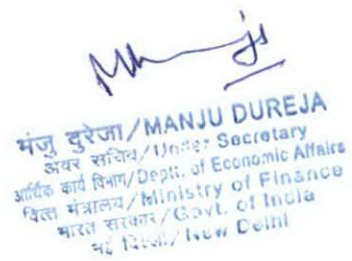 मंजु दुरेजा/MANJU DUREJA
अवर सचिव/Under Secretary
आर्थिक कार्य विभाग/Deptt. of Economic Affairs
वित्त मंत्रालय/Ministry of Finance
भारत सरकार/Govt. of India
नई दिल्ली/New Delhi